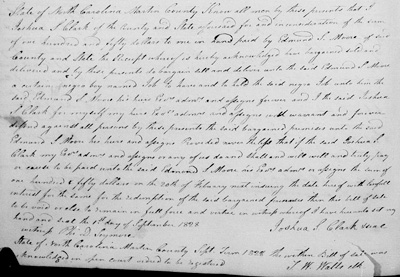 State of North Carolina Martin County Know all men by these presents that I
Joshua S Clark of the County and State aforesaid for and in consideration of the sum
of one hundred and fifty dollars to me in hand paid by Edmund S. Moore of said
County and State the Receipt whereof is hereby acknowledged have bargained sold and
delivered and by these presents do bargain sell and deliver unto the said Edmund S Moore
a certain negro boy named Job to have and to hold the said negro Job unto him the
said Edmund S. Moore his heirs Exrs admrs and assigns forever and I the said Joshua
S Clark for myself my heirs Exrs admrs and assigns will warrant and forever
defend against all persons by these presents the said bargained premises unto the said
Edmund S Moore his heirs and assigns Provided nevertheless that if the said Joshua S.
Clark my Exrs admrs and assigns or any of us do and shall and will well and truly pay
or cause to be paid unto the said Edmund S Moore his Exrs admrs or assigns the sum of
one hundred & fifty dollars on the 20th of February next ensuing the date hereof with lawful
interest for the same for the redemption of the said bargained premises then this bill of sale
to be void or else to remain in full force and virtue in witness whereof I have hereunto set my
hand and seal the 1st day of September 1828
Joshua S Clark seal
witness
State of North Carolina Martin County Sept. Term 1828 the within Bill of sale was
acknowledged in open court ordered to be registered